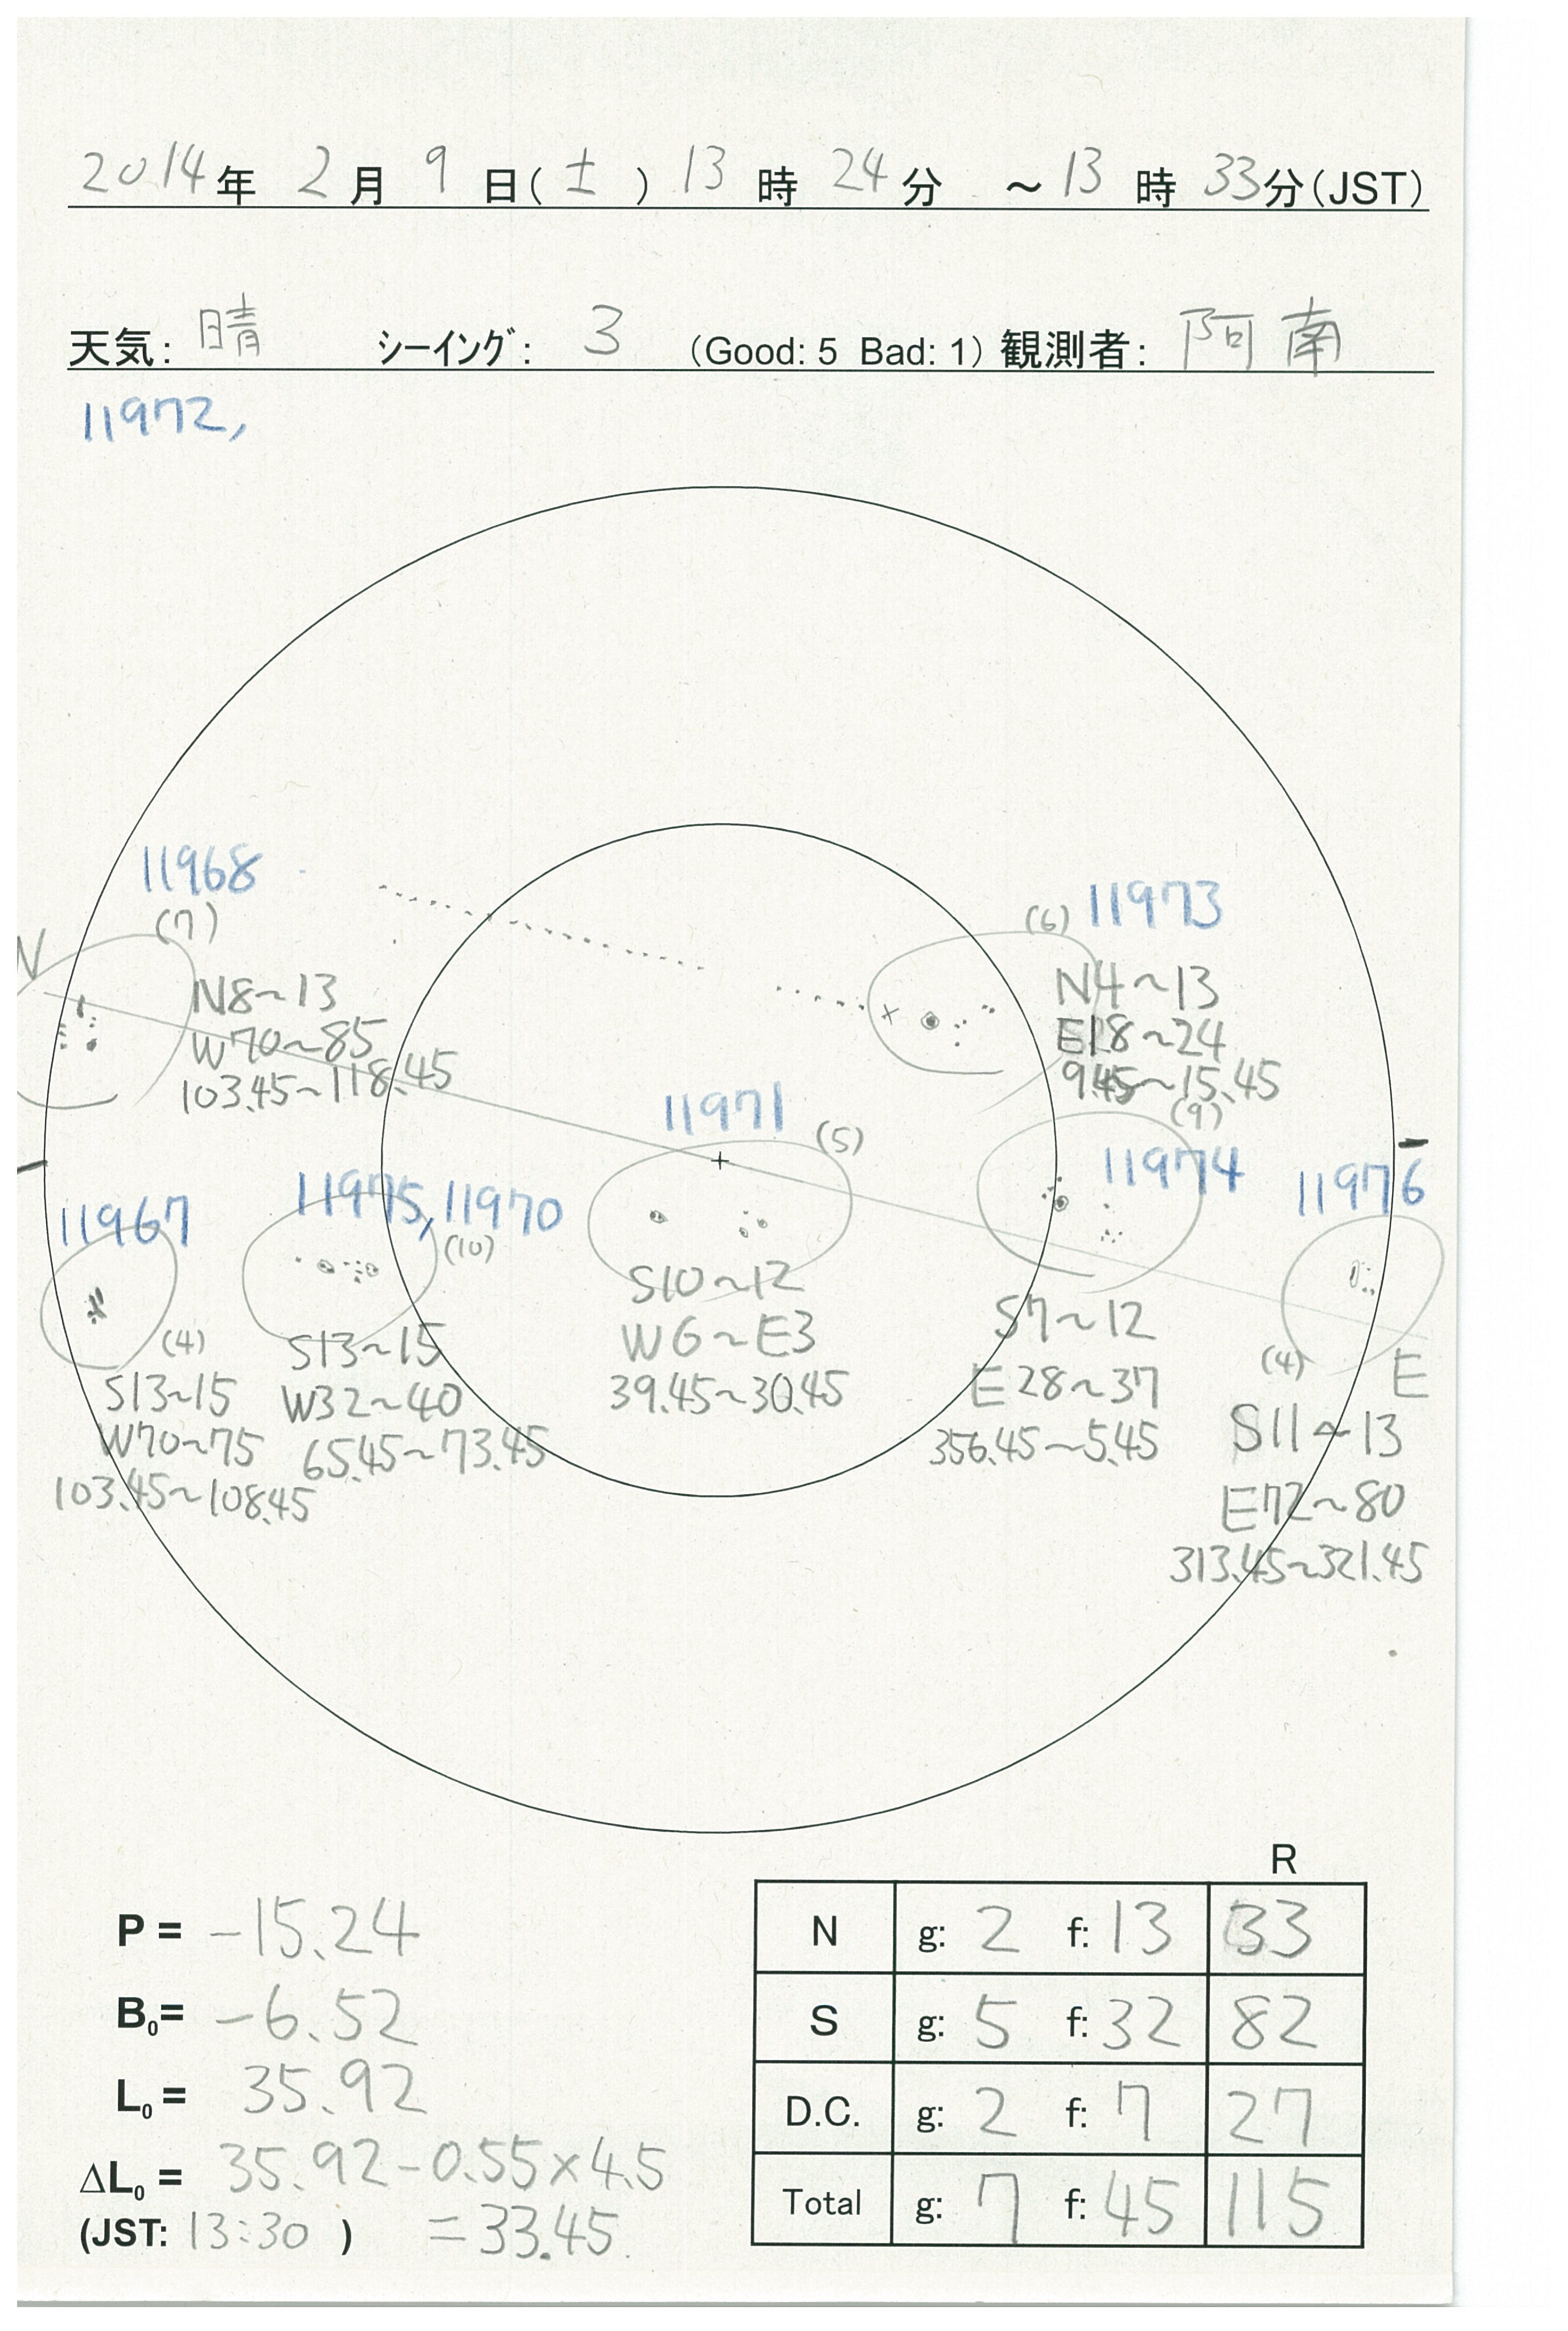 2014年 2月 9日(土) 13時 24分 ～13時 33分(JST)
天気: 晴 シーイング: 3 (Good: 5 Bad: 1) 観測者: 阿南
11972,
11968
(7)
N
N8~13
W70~85
103.45~118.45
(6) 11973
N4~13
E18~24
9.45~15.45
11971
(5)
S10~12
W6~E3
39.45~30.45
(9)
11974
S7~12
E28~37
356.45~5.45
11976
(4)
E
S11~13
E72~80
313.45~321.45
11967
(4)
S13~15
W70~75
103.45~108.45
11975, 11970
(10)
S13~15
W32~40
65.45~73.45
P = -15.24
B₀= -6.52
L₀ = 35.92
ΔL₀ = 35.92-0.55×4.5
(JST: 13:30 ) =33.45
R
N g: 2 f: 13 33
S g: 5 f: 32 82
D.C. g: 2 f: 7 27
Total g: 7 f: 45 115